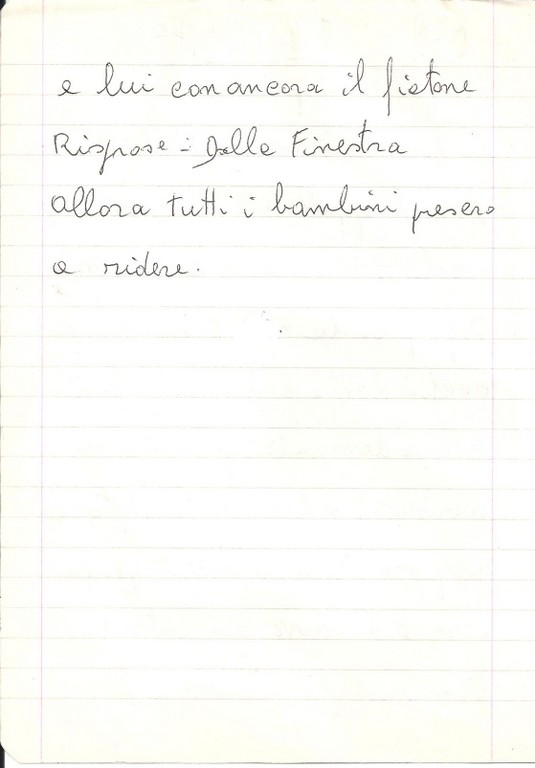 e lui con ancora il fiatone
Rispose = Dalla Finestra
allora tutti i bambini presero
a ridere.